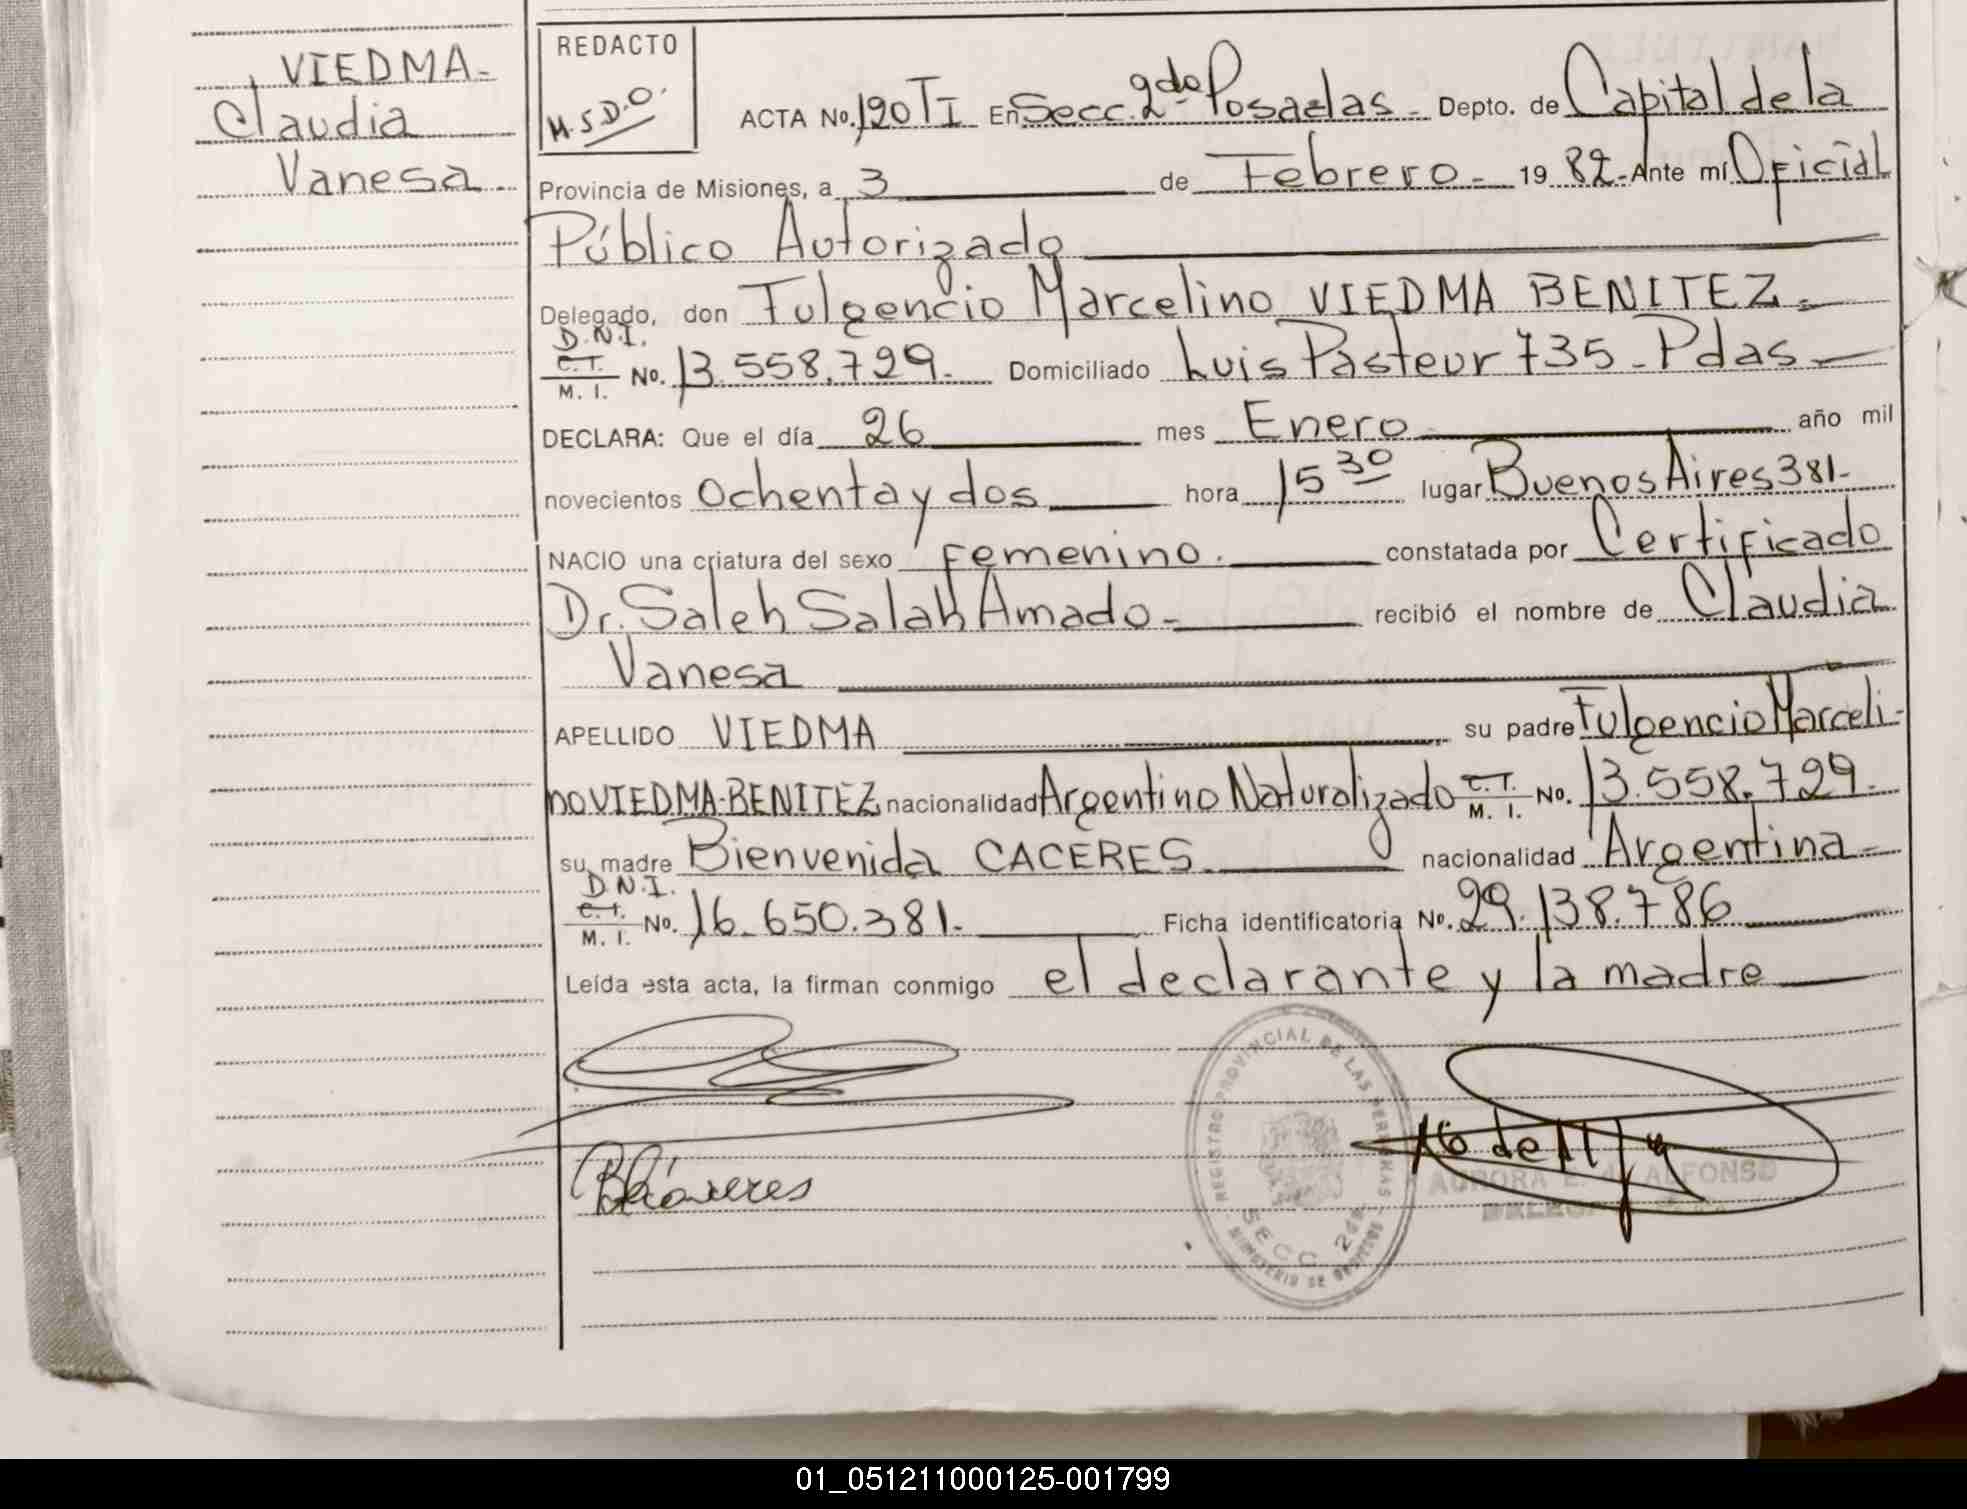 VIEDMA-
Claudia
Vanesa
REDACTO
M.S.D.O.
ACTA No. 190 TI En Secc. 2da Posadas - Depto. de Capital de la
Provincia de Misiones, a 3 de Febrero - 19 82 - Ante mí Oficial
Público Autorizado
Delegado, don Fulgencio Marcelino VIEDMA BENITEZ -
D.N.I.
C. I.
M. I. No. 13.558.729. Domiciliado Luis Pasteur 735 - Pdas -
DECLARA: Que el día 26 mes Enero año mil
novecientos Ochenta y dos hora 15 30 lugar Buenos Aires 381-
NACIO una criatura del sexo femenino. constatada por Certificado
Dr. Saleh Salah Amado - recibió el nombre de Claudia
Vanesa
APELLIDO VIEDMA su padre Fulgencio Marceli-
no VIEDMA-BENITEZ nacionalidad Argentino Naturalizado C. I. M. I. No. 13.558.729.
su madre Bienvenida CACERES. nacionalidad Argentina -
D.N.I.
C. I.
M. I. No. 16.650.381. Ficha identificatoria No. 29.138.786
Leída esta acta, la firman conmigo el declarante y la madre
REGISTRO PROVINCIAL DE LAS PERSONAS
SECC 2da
MINISTERIO DE
BCáceres
AURORA E. ALFONSO
01_051211000125-001799